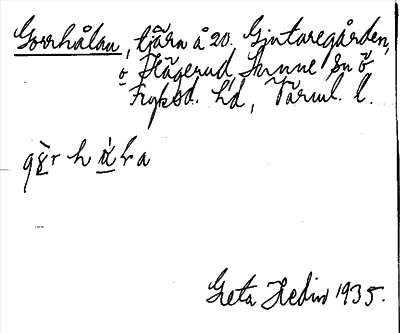 Gorrhålan, tjärn å 20. Gjutaregården,
ö Hägerud, Sunne sn ö
Fryksd. hd, Värml. l.
Greta Hedin 1935.